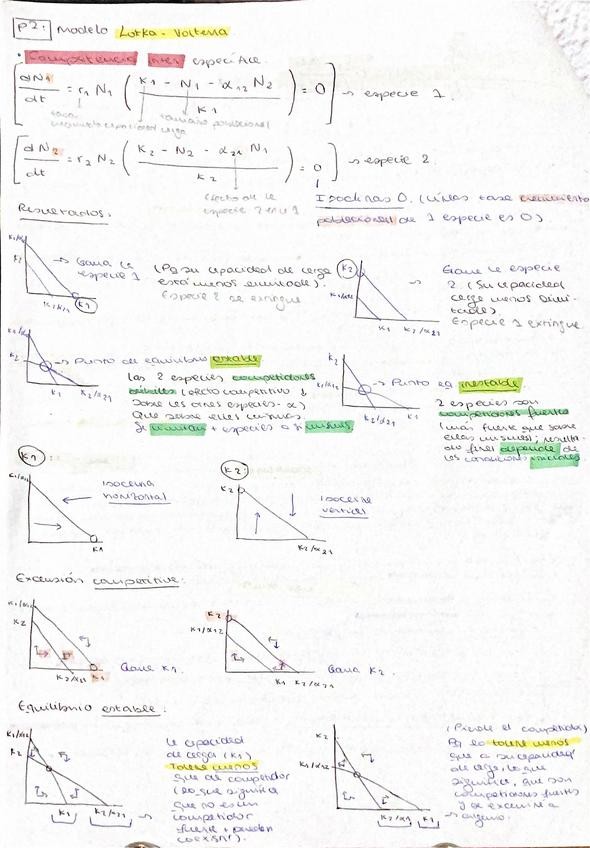 P2: Modelo Lotka-Volterra
• Competencia inter específica.
dN1/dt = r1 N1 ( K1 - N1 - α12 N2 / K1 ) = 0 → especie 1.
tasa crecimiento capacidad carga
tamaño poblacional
dN2/dt = r2 N2 ( K2 - N2 - α21 N1 / K2 ) = 0 → especie 2
efecto de la
especie 2 en 1
Isoclinas 0. (líneas tasa crecimiento
poblacional de 1 especie es 0).
Resultados:
K1/α12
K2
→ Gana la
especie 1
(Pq su capacidad de carga
está menos limitada).
Especie 2 se extingue
K2/α21
K1
K2
K1/α12
K1
K2/α21
Gana la especie
2. (Su capacidad
carga menos
limitada).
Especie 1 extingue
K1/α12
K2
K1
K2/α21
→ Punto de equilibrio estable
Las 2 especies competidores
débiles (efecto competitivo ↓
sobre las otras especies - α)
Que sobre ellas mismas.
Se limitan + especies a sí mismas.
K2
K1/α12
K2/α21
K1
→ Punto eq inestable
2 especies son
competidores fuertes
(más fuerte que sobre
ellas mismas); resulta-
do final depende de
las condiciones iniciales
K1:
K1/α12
K1
isoclina
horizontal
K2:
K2
K2/α21
isoclina
vertical
Exclusión competitiva:
K1/α12
K2
K2/α21
K1
Gana K1.
K2
K1/α12
K1
K2/α21
Gana K2.
Equilibrio estable:
K1/α12
K2
K1
K2/α21
la capacidad
de carga (K1)
Tolera menos
que de competidor
(lo que significa
que no es un
competidor
fuerte + pueden
coexistir).
K2
K1/α12
K2/α21
K1
(Pierde el competidor)
Pq lo tolera menos
que a su capacidad
de carga, lo que
significa, que son
competidores fuertes
y se excluirá a
alguno.